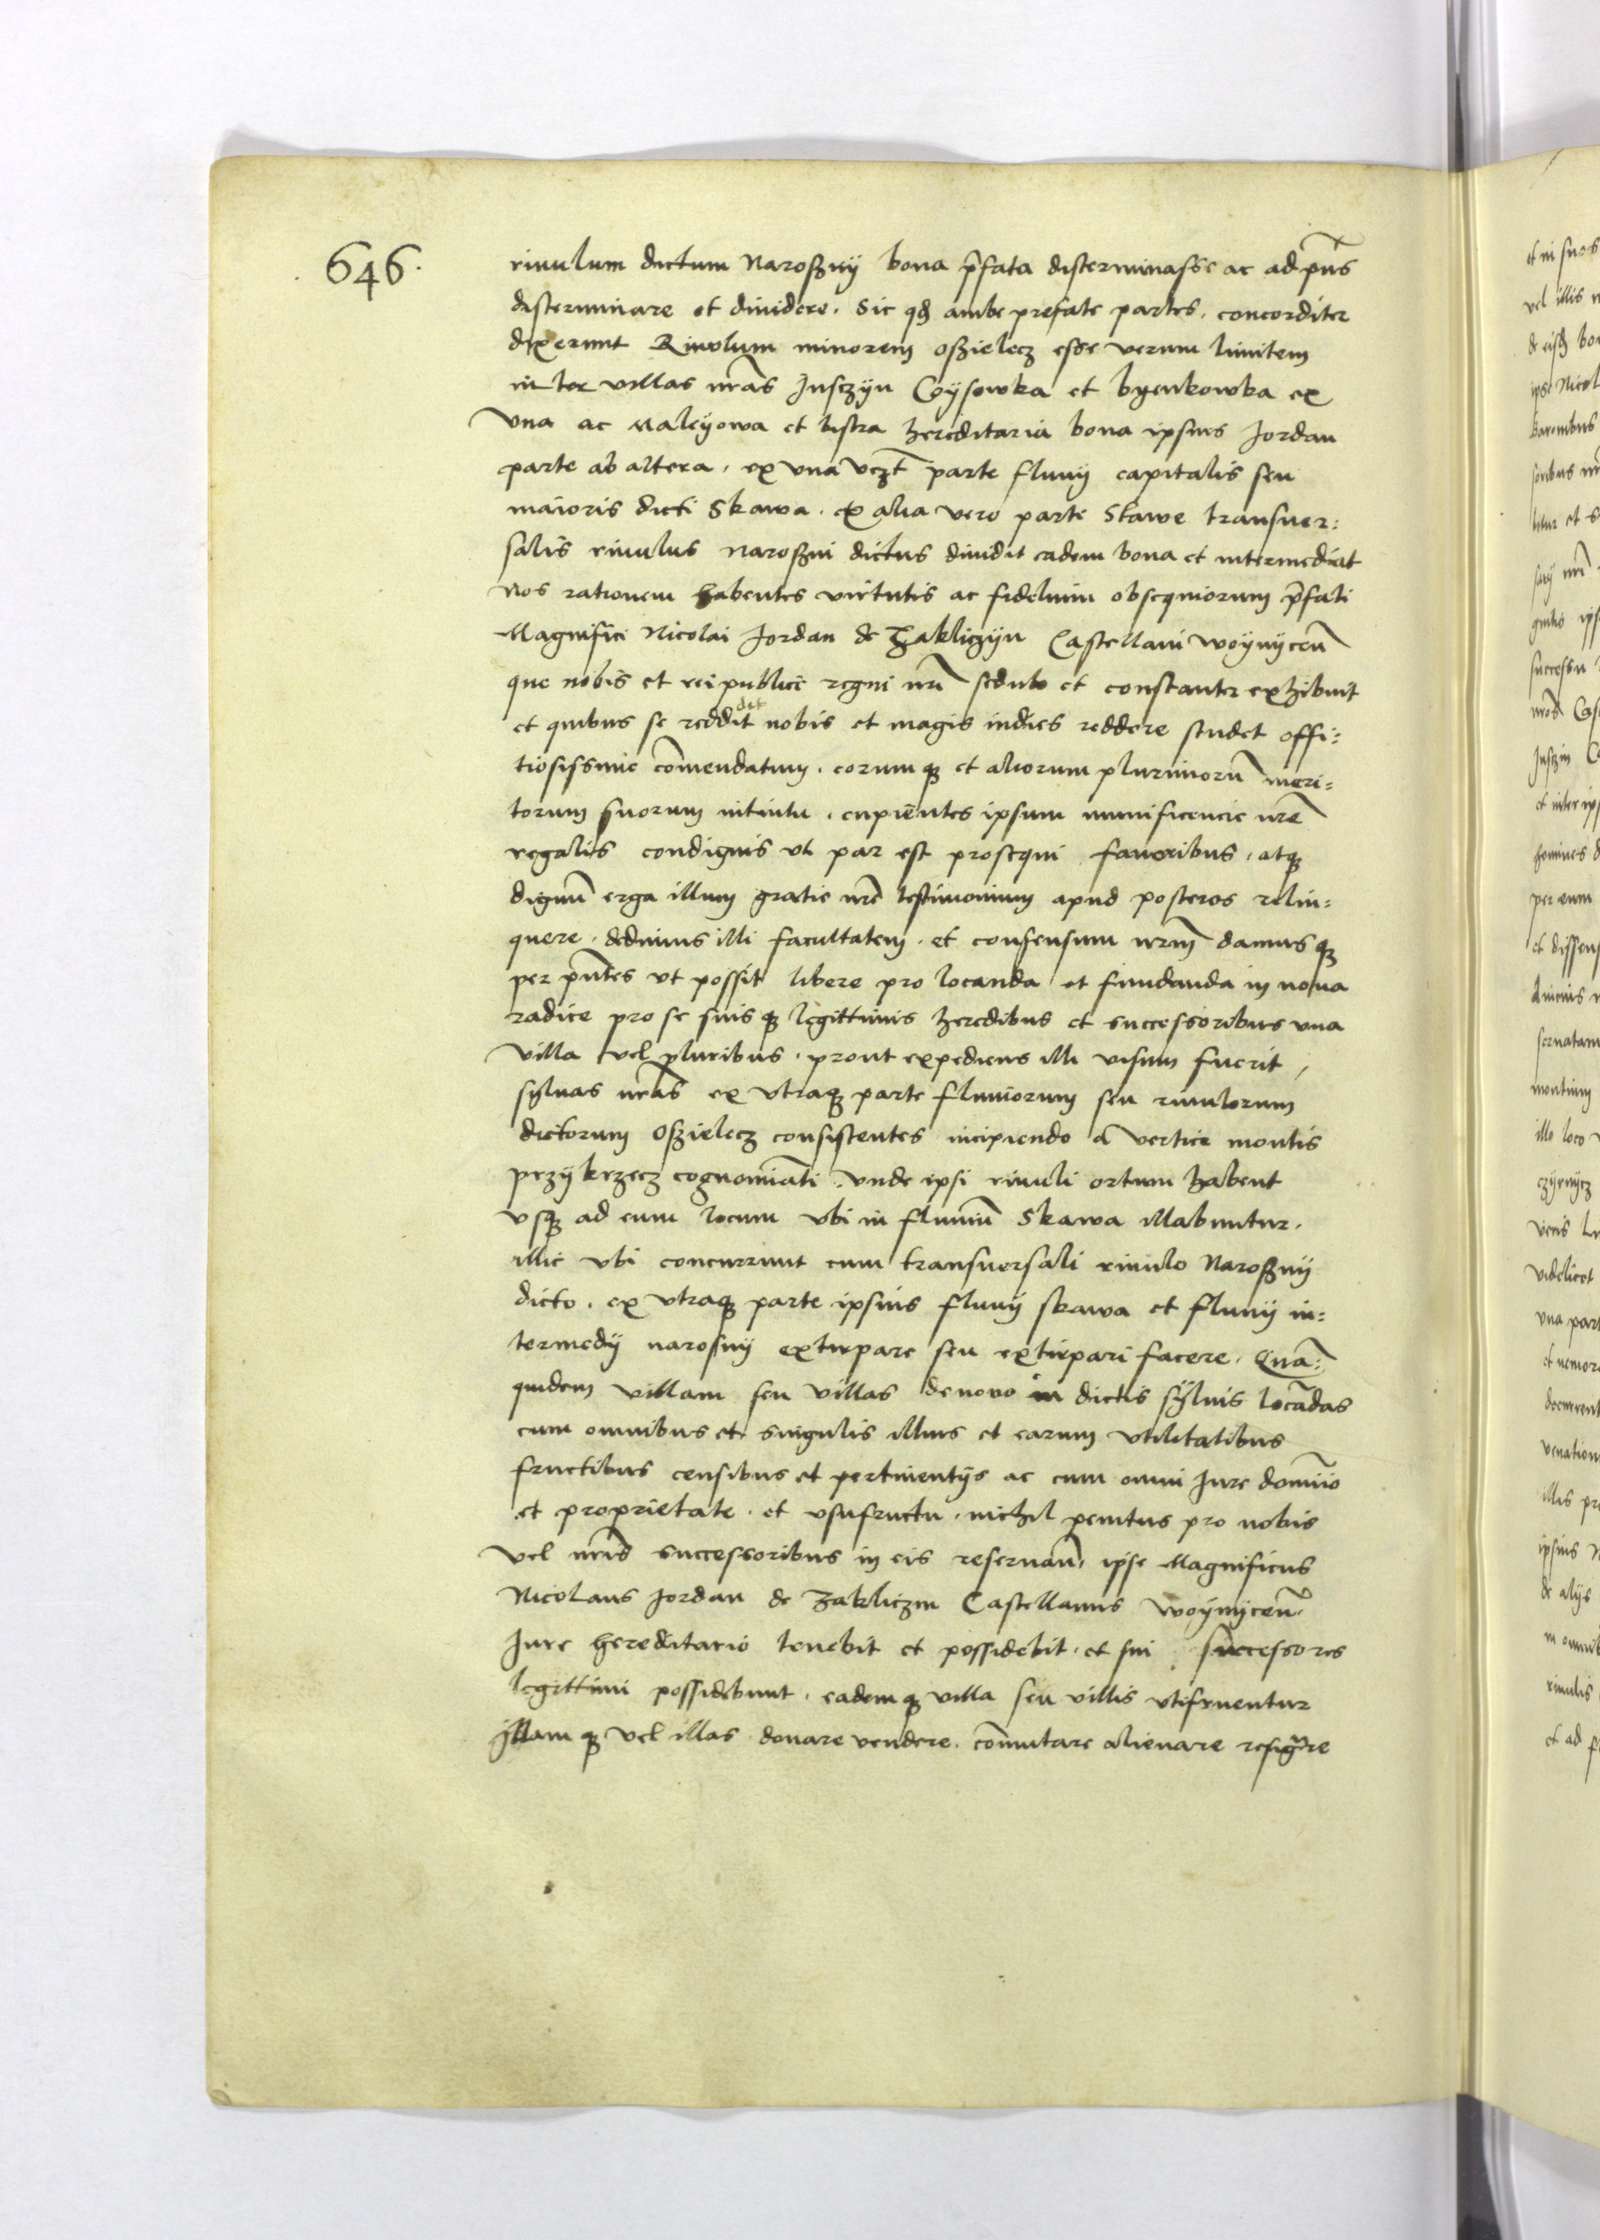 646.
rivulum dictum Naroßnij bona p̄fata disterminasse ac ad pn̄s
disterminare et dividere. Sic qd ambe prefate partes. concorditer
dixerunt Rivolum minorem oßielecz esse verum limitem
inter villas nr̄as Juszyn Coysowka et byenkowka ex
Una ac Maleyowa et bistra hereditaria bona ipsius Jordan
parte ab altera. ex una vczt parte fluvij capitalis seu
maioris dicti Skawa. ex alia vero parte Skawe transver=
salis rivulus Naroßni dictus dividit eadem bona et intermediat
Nos rationem habentes virtutis ac fidelium obsequiorum p̄fati
Magnifici Nicolai Jordan de Zakliczyn Castellani woynycen̄
que nobis et reipublice regni nr̄i sedulo et constanter exhibuit
et quibus se reddit det nobis et magis indies reddere studet offi=
tiosissime com̄endatum. eorumq3 et aliorum plurimorū meri=
torum suorum intuitu. cupientes ipsum munificencie nr̄e
regalis condignis ut par est prosequi favoribus. atq3
dignū erga illum gratie nr̄e testimonium apud posteros relin=
quere. dedimus illi facultatem. et consensum nrm̄ damusq3
per pn̄tes ut possit libere pro locanda et fundanda in nova
radice pro se suisq3 legittimis heredibus et successoribus una
Villa vel pluribus. prout expediens illi visum fuerit,
sylvas nr̄as ex utraq3 parte fluviorum seu rivulorum
dictorum Oßielecz consistentes incipiendo a vertice montis
przykrzecz cognomināti. Unde ipsi rivuli ortum habent
usq3 ad eum locum ubi in fluviū Skawa illabuntur.
illic ubi concurrunt cum transversali rivulo Naroßnij
dicto. ex utraq3 parte ipsius fluvij skawa et fluvij in=
termedij narosnij extirpare seu extirpari facere. Quā=
quidem villam seu villas de novo in dictis sylvis locādas
cum omnibus et singulis illius et earum utilitatibus
fructibus censibus et pertinentijs ac cum omni Jure dominio
et proprietate. et usufructu. nichil penitus pro nobis
Vel nr̄is successoribus in eis reservan̄. ipse Magnificus
Nicolaus Jordan de Zakliczin Castellanus woynycen̄.
Jure hereditario tenebit et possidebit. et sui successores
legittimi possidebunt. eademq3 villa seu villis utifruentur
illamq3 vel illas. donare vendere. com̄utare alienare resig̅re